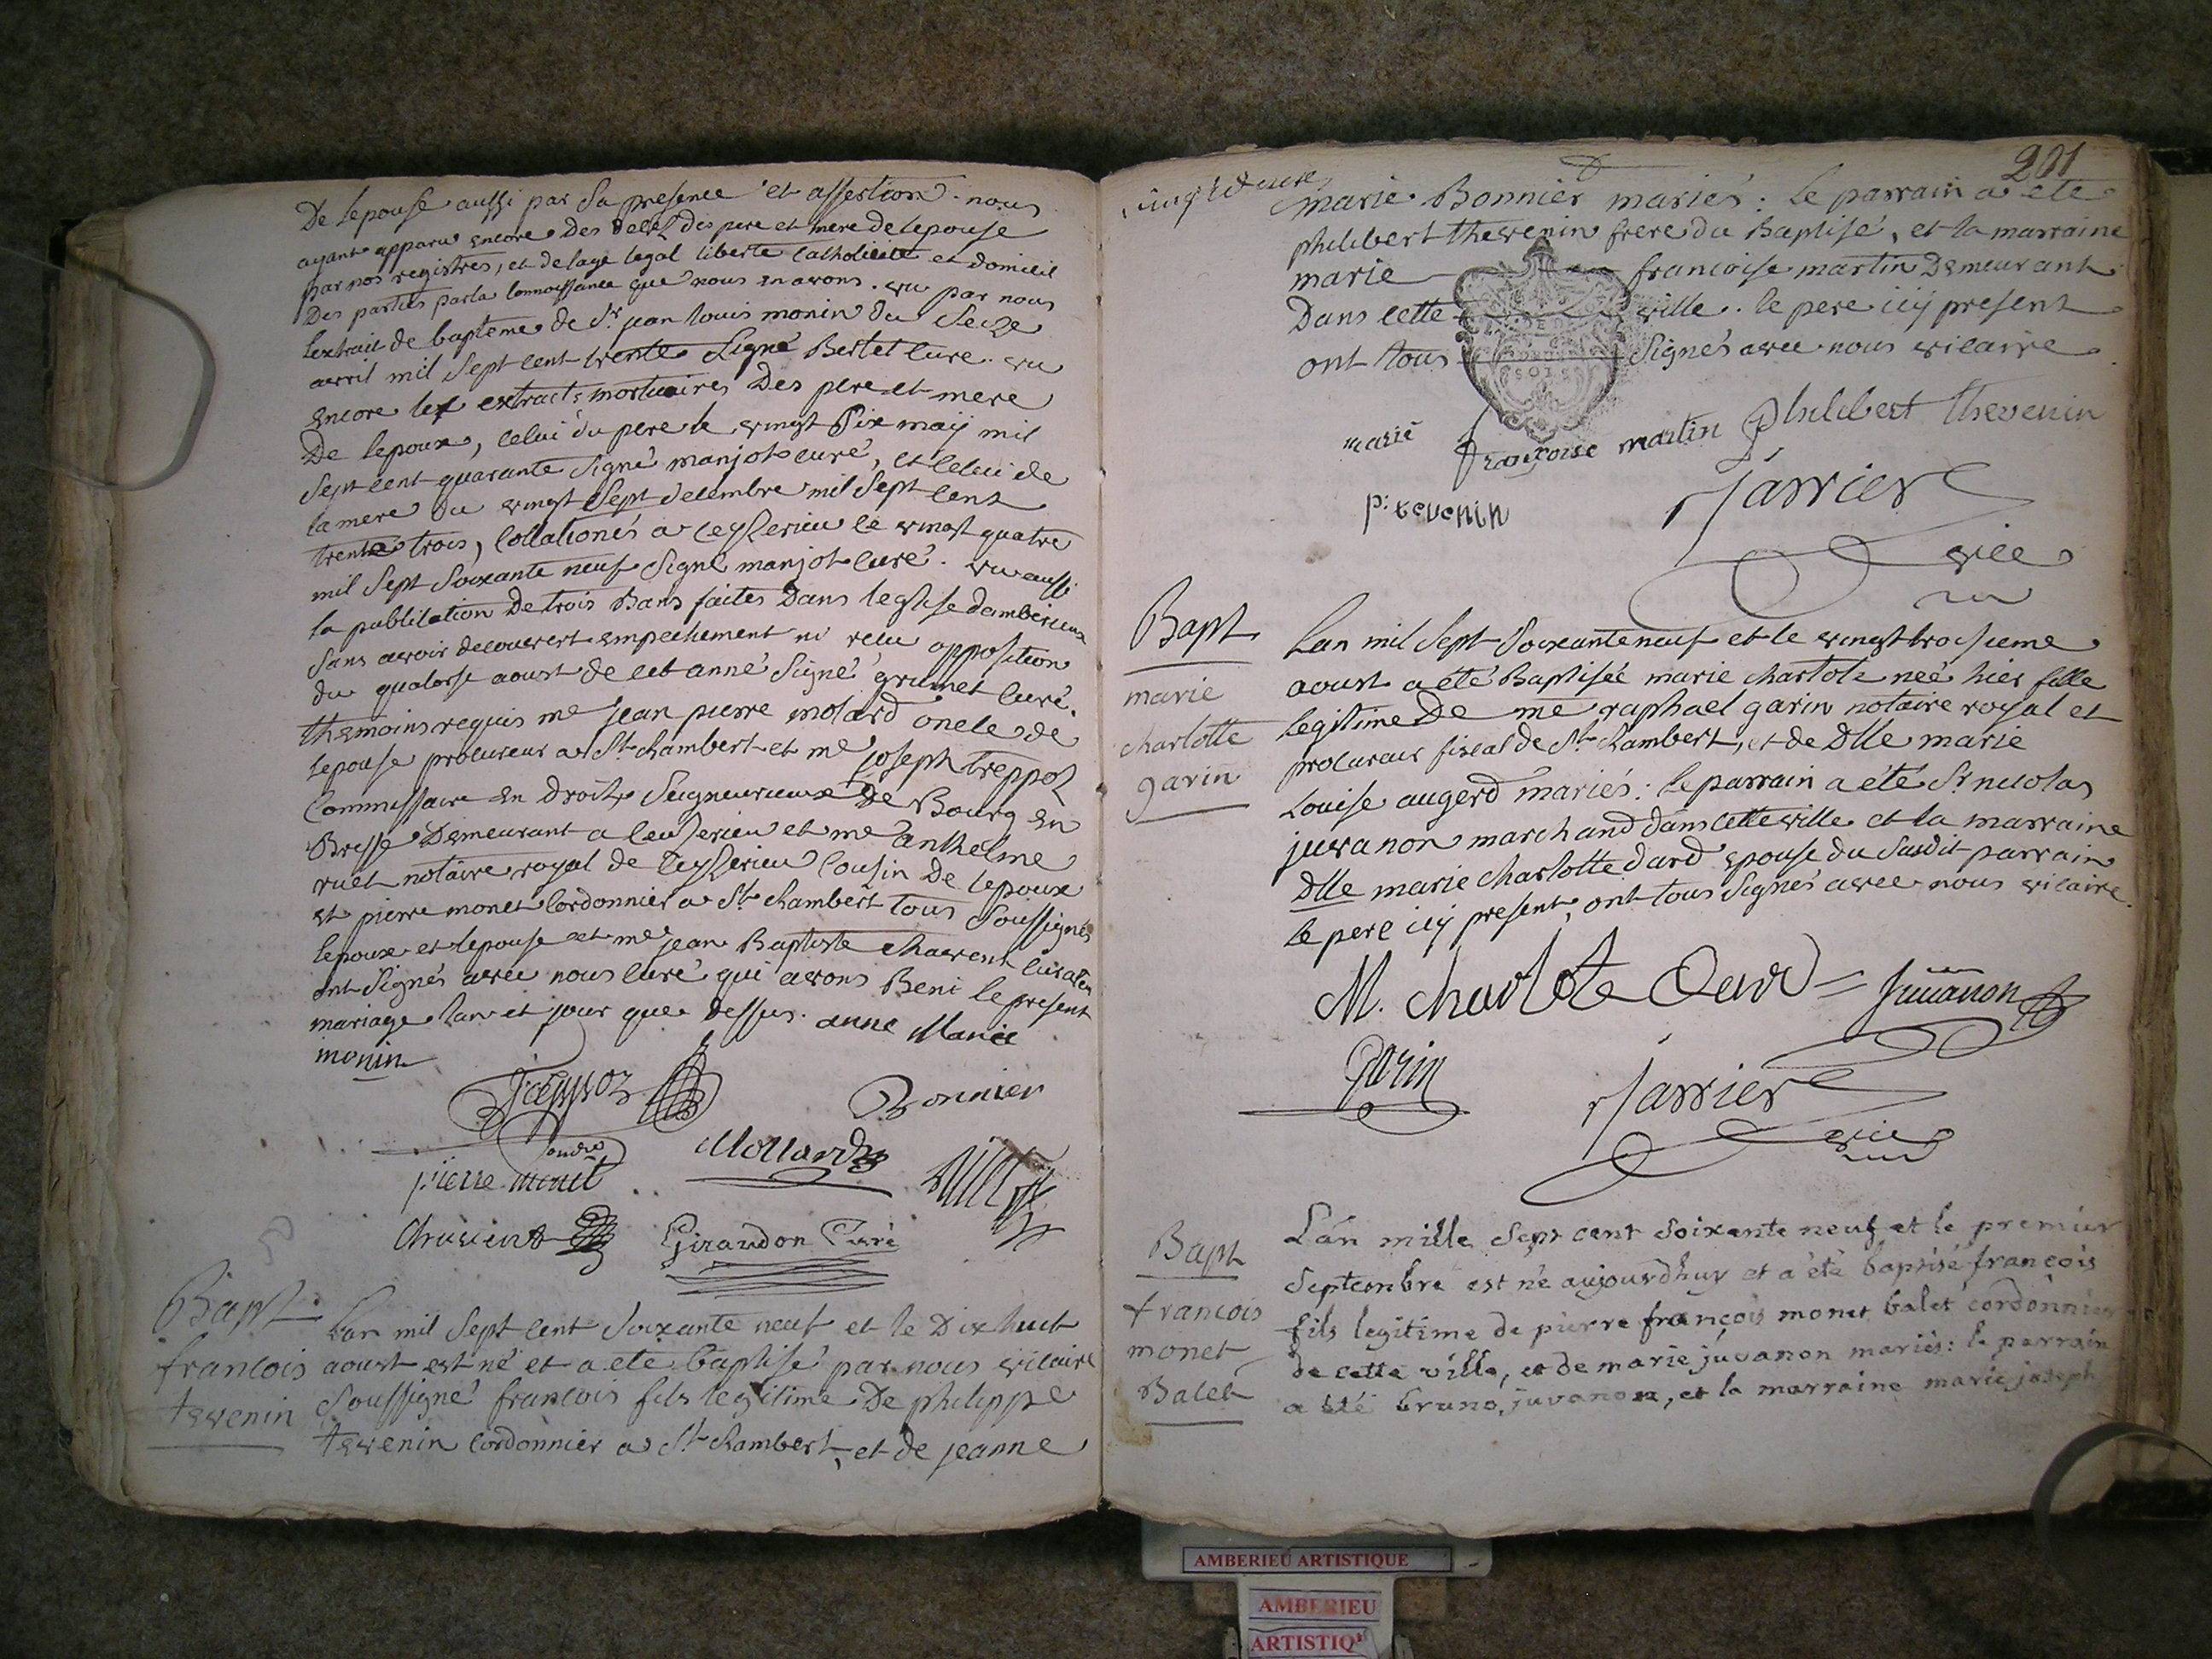 De lepouse aussi par sa presence et assertion. nous
ayant apparu encore des deces des pere et mere de lepouse
par nos registres, et de lage legal liberte catholicité et domicil
Des parties par la connoissance que nous en avons. vu par nous
lextrait de bapteme de Sr. jean louis monin du Seize
avril mil Sept cent trente Signé Bertet curé. vu
encore les extraits mortuaires des pere et mere
De lepoux, celui du pere le vingt Six maij mil
Sept cent quarante Signé manjot curé, et celui de
la mere du vingt Sept decembre mil Sept cent
trente trois, collationés a ceyserieu le vingt quatre
mil Sept Soixante neuf Signé manjot curé. vu aussi
la publication De trois Bans faites Dans leglise dambérieux
Sans avoir decouvert empechement ni recu opposition
du quatorse aoust de cet anné Signé grumet curé.
themoins requis me jean pierre molard oncle de
lepouse procureur a St. Rambert et me joseph treppoz
Commissaire en droits Seigneuriaux De Bourg en
Bresse Demeurant a ceyserieu et me anthelme
ruet notaire royal de ceyserieu Cousin De lepoux
et pierre monet Cordonnier a St Rambert tous Soussignés
lepoux et lepouse et me jean Baptiste chavent
ont Signés avec nous curé qui avons Beni le present
mariage lan et jour que dessus. anne Marie
monin
treppoz
Bonnier
pierre monet
Mollard
Chavent
Giraudon Curé
Bapt.
francois
tevenin
Lan mil Sept cent Soixante neuf et le Dixhuit
aoust est né et a ete baptisé par nous vicaire
Soussigné francois fils legitime De philippe
tevenin Cordonnier a St Rambert, et de jeanne
201
marie Bonnier mariés: le parrain a ete
philibert thevenin frere du Baptisé, et la marraine
marie francoise martin Demeurant
Dans cette ville. le pere icij present
ont tous Signés avec nous vicaire
marie francoise martin Philibert thevenin
p: tevenin
Jarrier
vice
Bapt
marie
charlotte
garin
Lan mil Sept Soixante neuf et le vingt troisieme
aoust a été Baptisée marie charlote neé hier fille
legitime De me raphael garin notaire royal et
procureur fiscal de St. Rambert, et de Dlle marie
Louise augerd mariés: le parrain a été Sr. nicolas
juvanon marchand dans cette ville et la marraine
Dlle marie charlotte dard epouse du Susdit parrain
le pere icij present, ont tous Signés avec nous vicaire.
M. charlote Dard
juvanon
garin
Jarrier
vice
Bapt
francois
monet
Balet
L'an mille Sept cent Soixante neuf et le premier
Septembre est né aujourdhuy et a été baptisé françois
fils legitime de pierre françois monet balet cordonnier
de cette ville, et de marie juvanon mariés: le parrain
a été bruno juvanon, et la marraine marie joseph
AMBERIEU ARTISTIQUE
AMBERIEU
ARTISTIQ